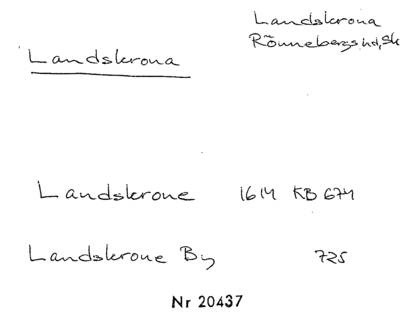 Landskrona
Rönnebergs hd, Sk
Landskrona
Landskrone 1614 KB 674
Landskrone By 725
Nr 20437